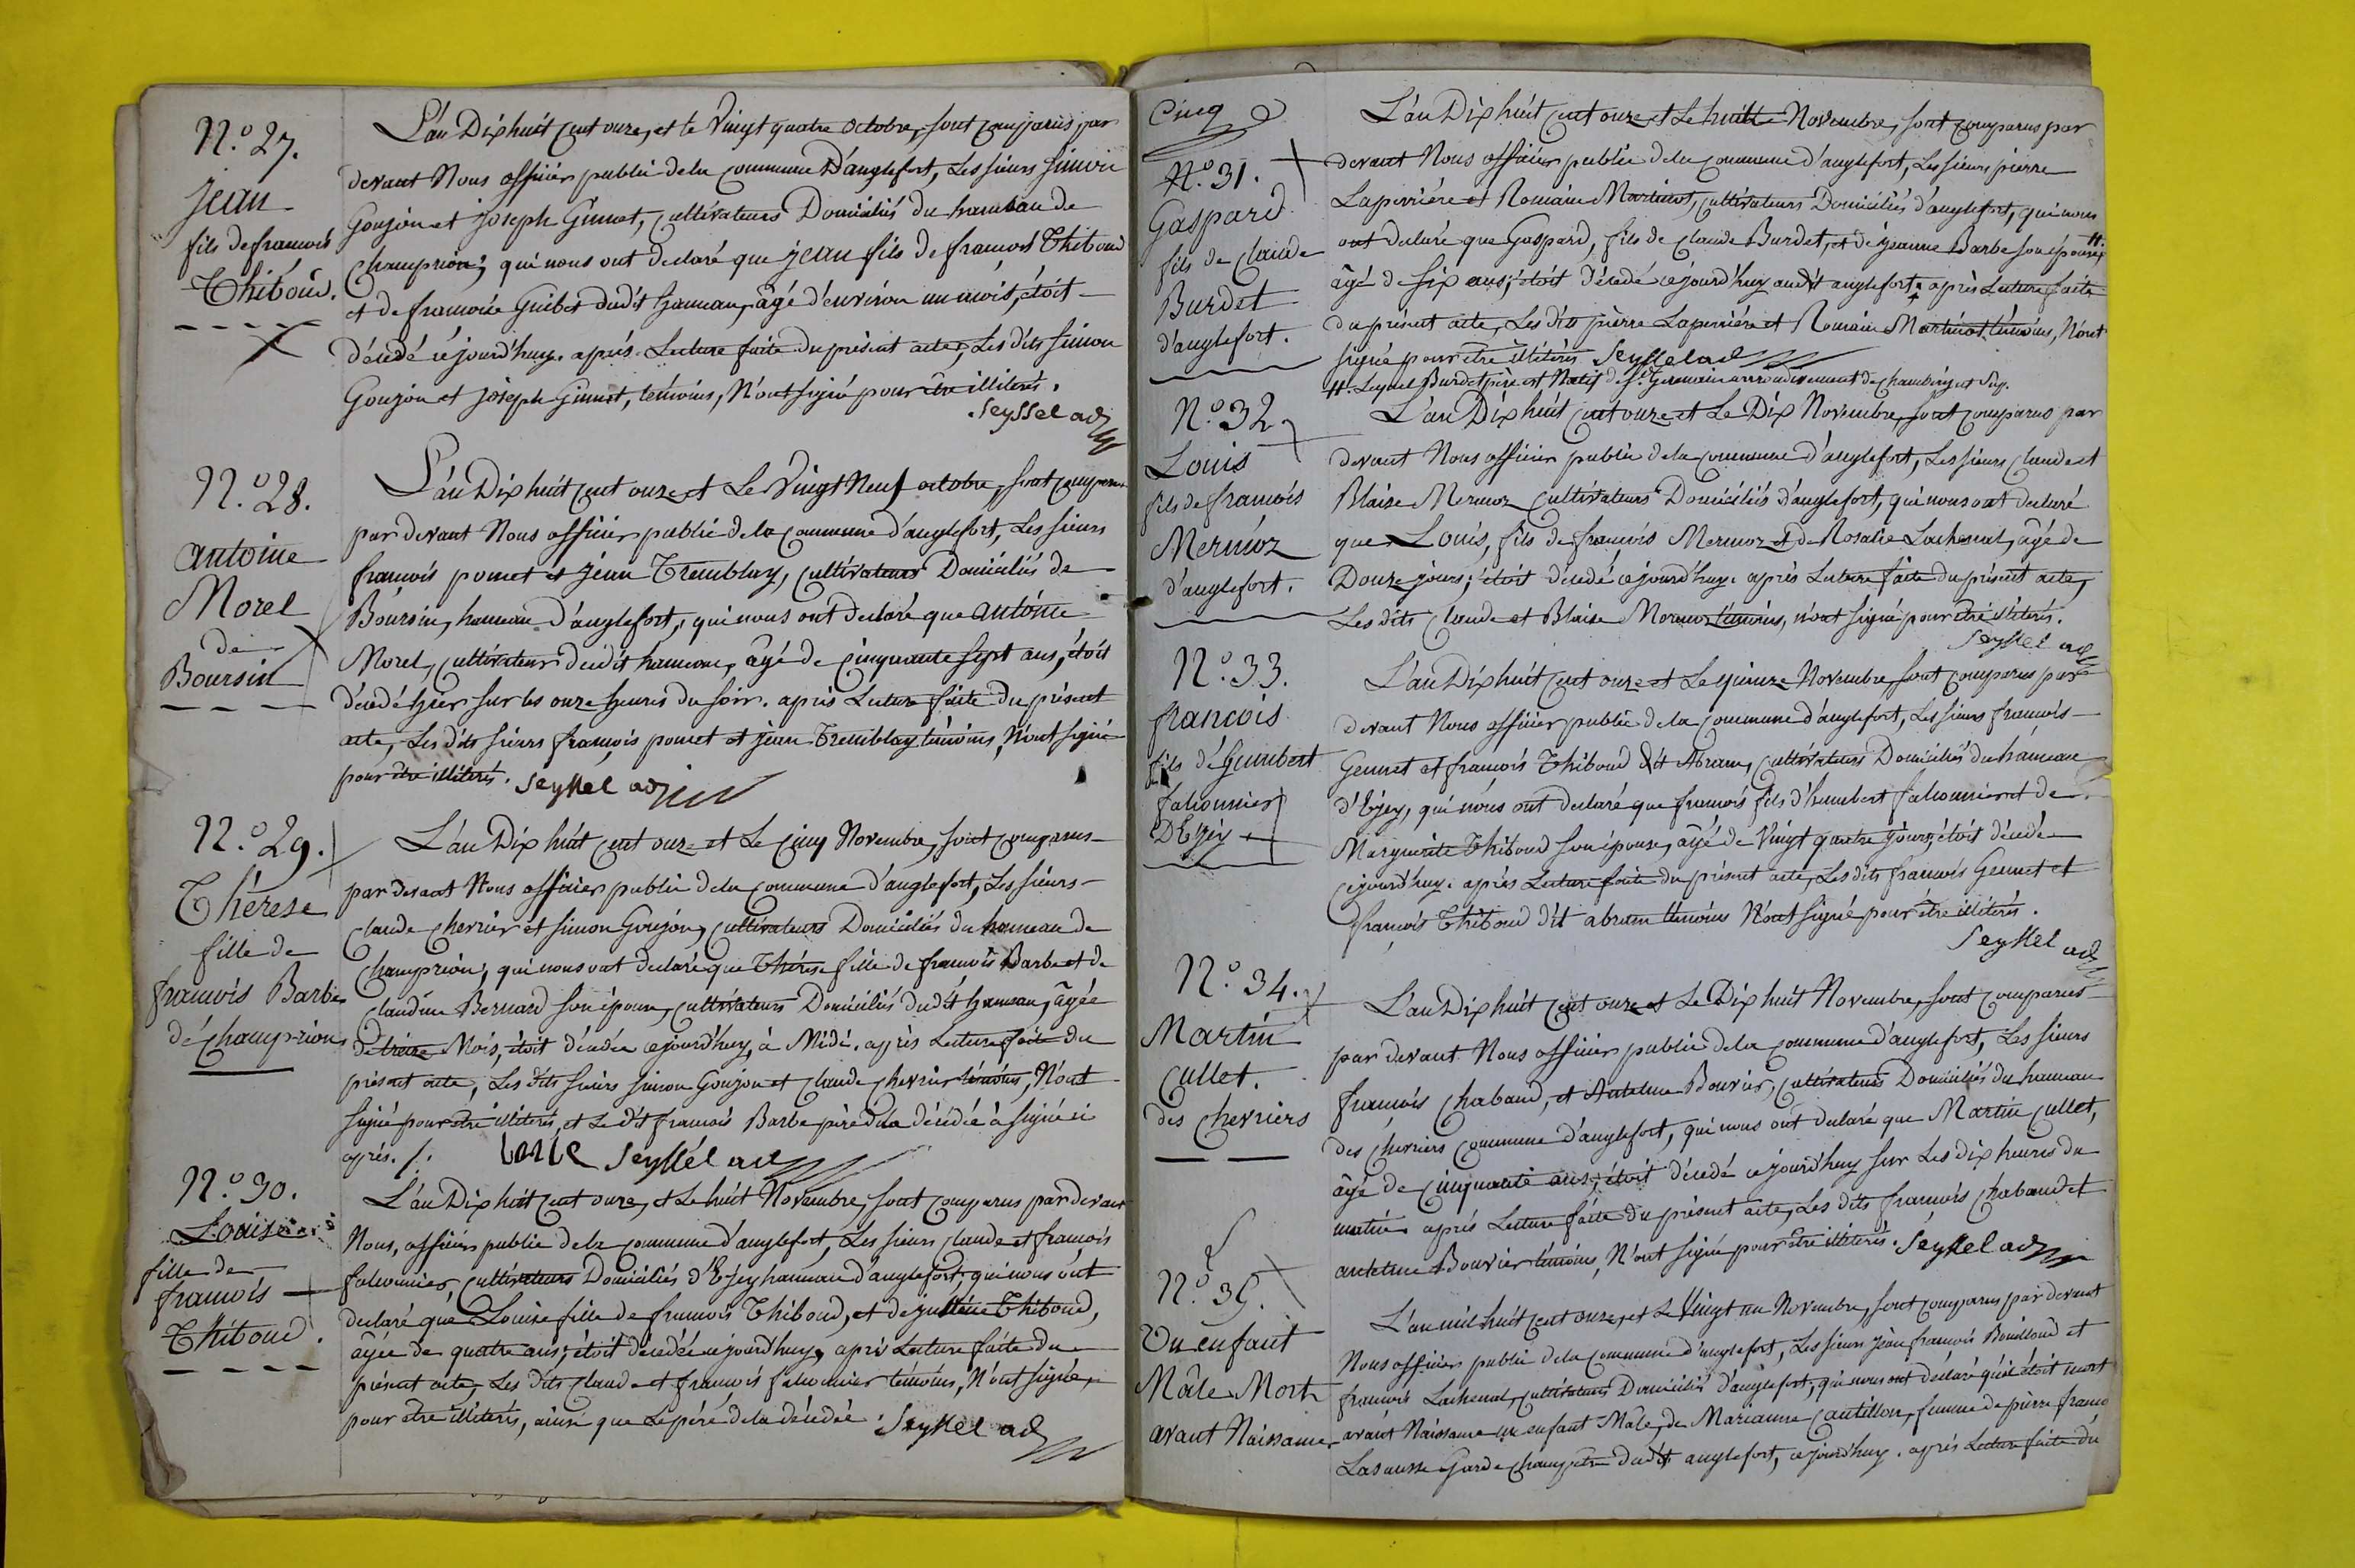 N.º 27.
Jean
fils de françois
Thiboud.
L'an Dix huit cent onze, et le Vingt quatre octobre, sont comparus par
devant Nous officier public de la commune D'anglefort, Les sieurs simon
Goujon et joseph Ginnet, cultivateurs Domiciliés du hameau de
Champrion; qui nous ont declaré que jean fils de françois Thiboud
et de françoise Guibet dudit hameau, âgé d'environ un mois, étoit
décédé cejourd'huy. après Lecture faite du présent acte, Les dits simon
Goujon et joseph Ginnet, témoins, N'ont signé pour être illiterés.
Seyssel adj
N.º 28.
antoine
Morel
de
Boursin
L'an Dix huit cent onze et Le Vingt Neuf octobre, sont comparus
par devant Nous officier public de la commune d'anglefort, Les sieurs
françois pomet et jean Tremblay, cultivateurs Domiciliés de
Boursin, hameau d'anglefort, qui nous ont declaré que antoine
Morel, cultivateur dudit hameau, âgé de cinquante sept ans, étoit
décédé hyer sur les onze heures du soir. après Lecture faite du présent
acte, Les dits sieurs françois pomet et jean Tremblay témoins, N'ont signé
pour être illiterés. Seyssel adj
N.º 29.
Thérese
fille de
françois Barbe
de champrion
L'an Dix huit cent onze et Le cinq Novembre, sont comparus
par devant Nous officier public de la commune d'anglefort, Les sieurs
claude cherrier et simon Goujon, cultivateurs Domiciliés du hameau de
Champrion, qui nous ont declaré que Thérese fille de françois Barbe et de
claudine Bernard son épouse, cultivateurs Domiciliés dudit hameau, âgée
de treize Mois, étoit décédée cejourd'huy, à Midi. après Lecture faite du
présent acte, Les dits sieurs simon Goujon et claude chevrier témoins, N'ont
signé pour être illiterés, et Le dit françois Barbe père de la décédée à signé ci
après. /. barbe Seyssel adj
N.º 30.
Louise
fille de
françois
Thiboud.
L'an Dix huit cent onze, et Le huit Novembre, sont comparus par devant
Nous, officier public de la commune d'anglefort, Les sieurs claude et françois
falconnier, cultivateurs Domiciliés d'Ejey hameau d'anglefort, qui nous ont
declaré que Louise fille de françois Thiboud, et de Thiboud,
âgée de quatre ans; étoit décédée cejourd'huy, après Lecture faite du
présent acte, Les dits claude et françois falconnier témoins, N'ont signé,
pour être illiterés, ainsi que Le père de la décédée. Seyssel adj
Cinq
N.º 31.
Gaspard
fils de claude
Burdet
d'anglefort.
L'an Dix huit cent onze et Le huit Novembre, sont comparus par
devant Nous officier public de la commune d'anglefort, Les sieurs pierre
Laperrière et Romain Martinot, cultivateurs Domiciliés d'anglefort, qui nous
ont declaré que Gaspard, fils de claude Burdet, et de jeanne Barbe son épouse, #.
âgé de six ans; étoit décédé cejourd'huy audit anglefort. après Lecture faite
du présent acte, Les dits pierre Laperrière et Romain Martinot témoins, N'ont
signé pour être illiterés Seyssel adj
#. Lequel Burdet père est Natif de St. Germain arrondissement de chambéry
N.º 32
Louis
fils de françois
Mermoz
d'anglefort.
L'an Dix huit cent onze et Le Dix Novembre, sont comparus par
devant Nous officier public de la commune d'anglefort, Les sieurs claude et
Blaise Mermoz cultivateurs Domiciliés d'anglefort, qui nous ont declaré
que Louis, fils de françois Mermoz et de Rosalie Lachenal, âgé de
Douze jours; étoit décédé cejourd'huy. après Lecture faite du présent acte,
Les dits claude et Blaise Mermoz témoins, n'ont signé pour être illiterés.
Seyssel adj
N.º 33.
francois
fils d'humbert
falconnier
D'Ejey
L'an Dix huit cent onze et Le quinze Novembre sont comparus par
devant Nous officier public de la commune d'anglefort, Les sieurs françois
Gennet et françois Thiboud dit Abram, cultivateurs Domiciliés du hameau
d'Ejey, qui nous ont declaré que françois fils d'humbert falconnier et de
Marguerite Thiboud son épouse, âgé de Vingt quatre jours, étoit décédé
cejourd'huy. après Lecture faite du présent acte, Les dits françois Gennet et
françois Thiboud dit abram témoins N'ont signé pour être illiterés.
Seyssel adj
N.º 34.
Martin
Cullet.
des Chevriers
L'an Dix huit cent onze et Le Dix huit Novembre, sont comparus
par devant Nous officier public de la commune d'anglefort, Les sieurs
françois Chabaud, et Antelme Bouvier, cultivateurs Domiciliés du hameau
des chevriers commune d'anglefort, qui nous ont declaré que Martin Cullet,
âgé de cinquante ans, étoit décédé cejourd'huy sur Les dix heures du
matin. après Lecture faite du présent acte, Les dits françois Chabaud et
antelme Bouvier témoins, N'ont signé pour être illiterés. Seyssel adj
N.º 35.
Un enfant
Mâle Mort
avant Naissance
L'an mil huit cent onze, et Le Vingt un Novembre, sont comparus par devant
Nous officier public de la commune d'anglefort, Les sieurs jean françois Bouilloud et
françois Lachenal, cultivateurs Domiciliés d'anglefort; qui nous ont declaré qu'il étoit mort
avant Naissance un enfant Mâle, de Marianne Cantillon, femme de pierre franç.
Lasausse Garde champêtre dudit anglefort, cejourd'huy. après Lecture faite du